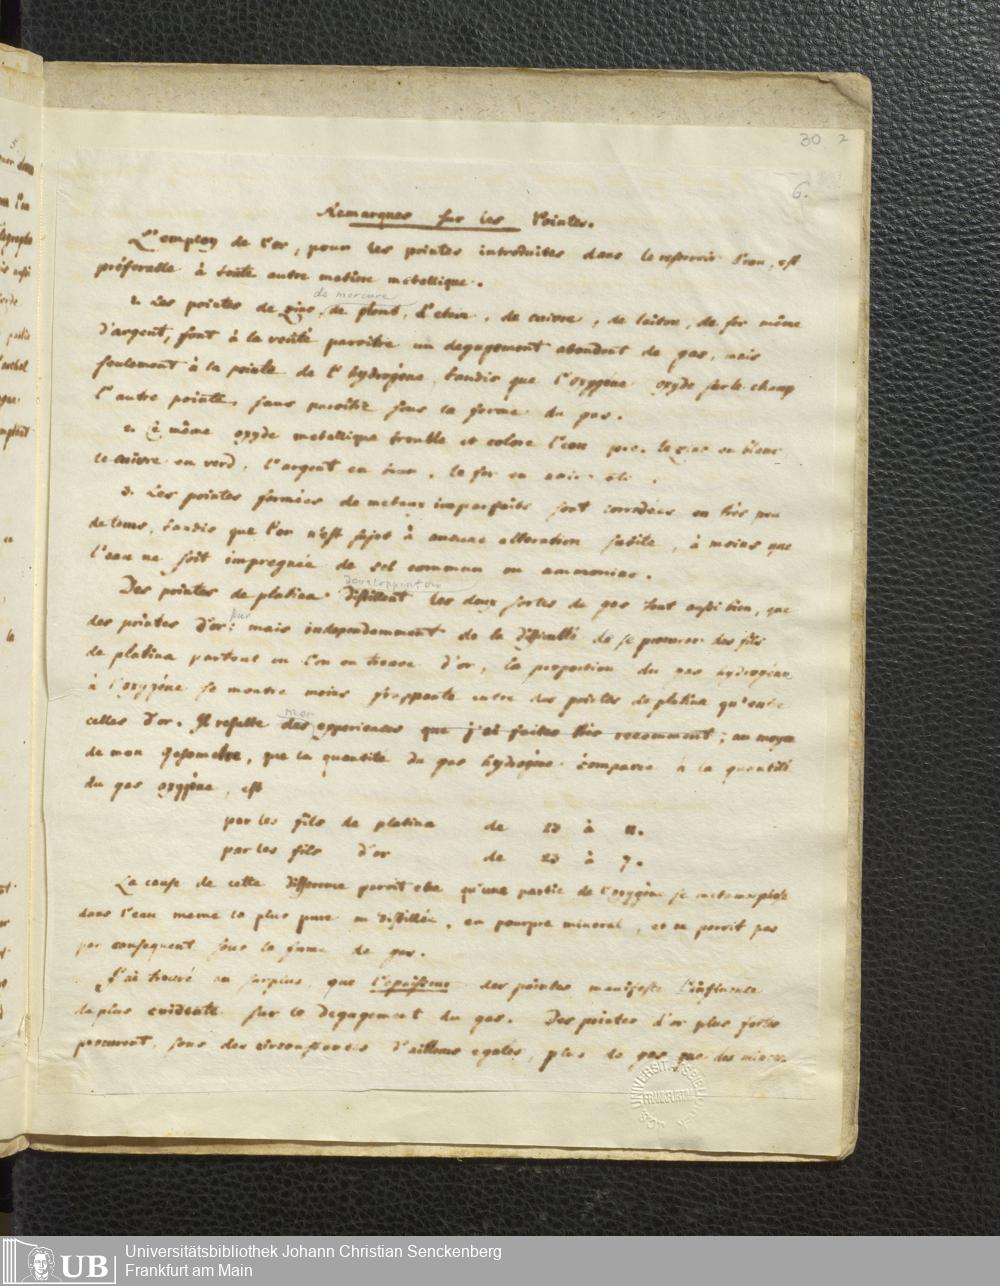 30 2
6.
Remarques sur les Pointes.
L'employ de l'or, pour les pointes introduites dans le reservoir d'eau, est
préferable à toute autre matiere metallique.
de mercure
1. Les pointes de zinc, de plomb, d'etain, de cuivre, de laiton, de fer même
d'argent, font à la verité paroitre un degagement abondant de gas, mais
seulement à la pointe de l'hydrogène, tandis que l'oxygène oxyde sur le champ
l'autre pointe, sans paroitre sous la forme du gas.
2. même oxyde metallique trouble et colore l'eau le zinc en blanc
le cuivre en verd, l'argent en brun, le fer en
3. Les pointes formées de metaux imparfaits sont corrodées en très peu
de tems, tandis que l'or n'est sujet à aucune alteration subite, à moins que
l'eau ne soit impregnée de sel commun ou ammoniac.
Des pointes de platina distillent les deux sortes de gas tout aussi bien, que
des pointes d'or; mais independamment de la difficulté de se procurer des fils
de platina partout ou l'on en trouve d'or, la proportion du gas hydrogène
à l'oxygène se montre moins frappante entre des pointes de platina qu'entre
celles d'or. Il resulte des experiences que j'ai faites très recemment; au moyen
de mon Gasometre, que la quantité du gas hydrogène comparée à la quantité
du gas oxygène, est
par les fils de platina de 23 à 11.
par les fils d'or de 23 à 7.
La cause de cette difference paroit etre qu'une partie de l'oxygène se metamorphose
dans l'eau meme la plus pure distillée, en pourpre mineral, et ne paroit pas
par consequent sous la forme de gas.
J'ai trouvé au surplus, que l'epaisseur des pointes manifeste l'influence
la plus evidente sur le degagement du gas. Des pointes d'or plus fortes
procurent, sous des circonstances d'ailleurs egales, plus de gas que des minces
UB
Universitätsbibliothek Johann Christian Senckenberg
Frankfurt am Main